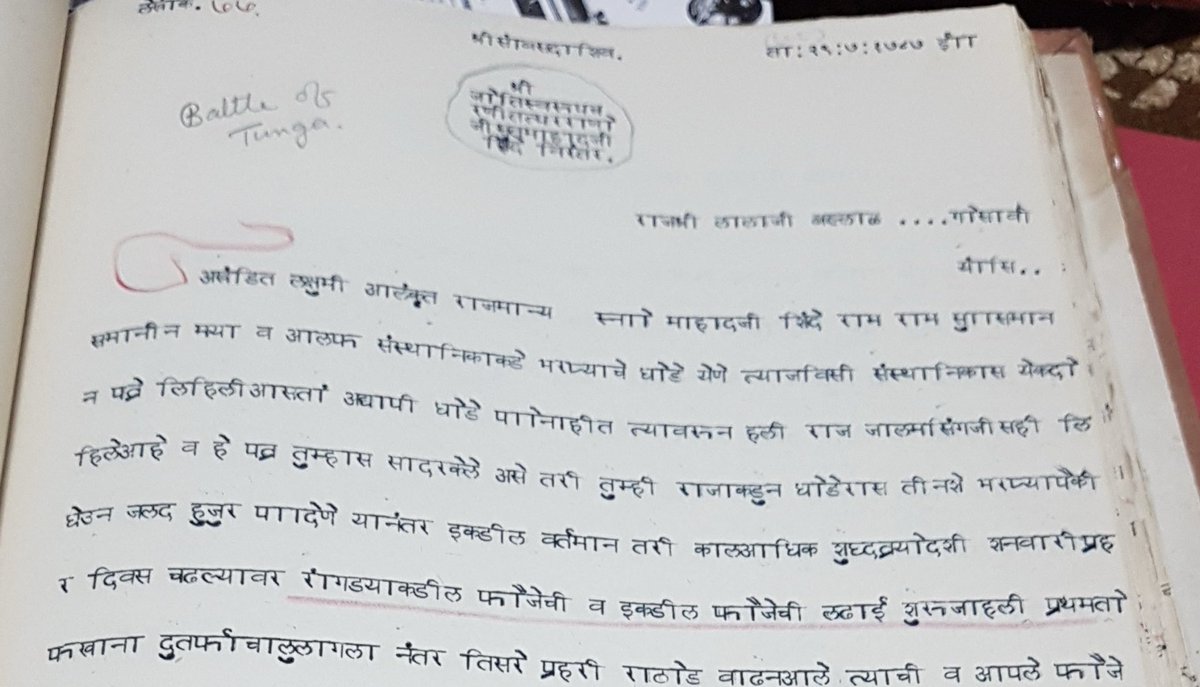 लेखांक. ७७.
श्रीसांबसदाशिव.
ता: २९:७:१७८७ ईाा
Battle of
Tunga.
श्री
जोतिस्वरूप
राजश्री लालाजी बल्लाळ ....गोसावी
यांसि..
अखंडित लक्षुमी आलंकृत राजमान्य स्नाो माहादजी शिंदे राम राम सुाासमान
समानीन मया व आलफ संस्थानिकाकडे भरण्याचे घोडे येणे त्याजविसी संस्थानिकास येकदो
न पत्रे लिहिलीआसतां अद्यापी घोडे पाोनाहीत त्यावरून हली राज जालमसिंगजीसही लि
हिलेआहे व हे पत्र तुम्हास सादरकेले असे तरी तुम्ही राजाकडुन घोडेरास तीनशे भरण्यापैकी
घेउन जलद हुजुर पााादेणे यानंतर इकडील वर्तमान तरी कालआधिक शुध्दत्रयोदशी शनवारीप्रह
र दिवस चढल्यावर रांगडयाकडील फौजेची व इकडील फौजेची लढाई शुरूजाहली प्रथमतो
फखाना दुतर्फाचालुलागला नंतर तिसरे प्रहरी राठोड वाढनआले त्याची व आपले फौजे